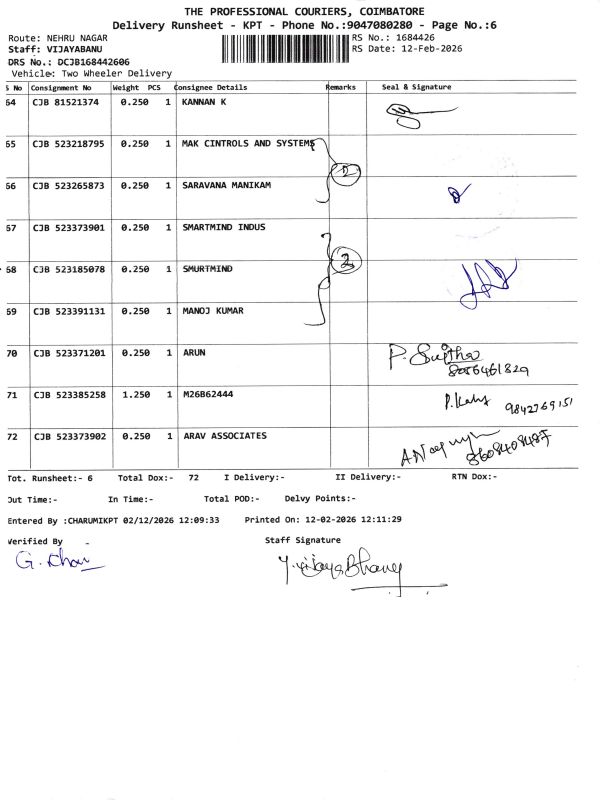 THE PROFESSIONAL COURIERS, COIMBATORE
Delivery Runsheet - KPT - Phone No.:9047080280 - Page No.:6
Route: NEHRU NAGAR RS No.: 1684426
Staff: VIJAYABANU RS Date: 12-Feb-2026
DRS No.: DCJB168442606
Vehicle: Two Wheeler Delivery
S No Consignment No Weight PCS Consignee Details Remarks Seal & Signature
64 CJB 81521374 0.250 1 KANNAN K
65 CJB 523218795 0.250 1 MAK CINTROLS AND SYSTEMS
2
66 CJB 523265873 0.250 1 SARAVANA MANIKAM
67 CJB 523373901 0.250 1 SMARTMIND INDUS
68 CJB 523185078 0.250 1 SMURTMIND
69 CJB 523391131 0.250 1 MANOJ KUMAR
70 CJB 523371201 0.250 1 ARUN P. Sujitha
8056461829
71 CJB 523385258 1.250 1 M26B62444 9842769151
72 CJB 523373902 0.250 1 ARAV ASSOCIATES 8608408487
Tot. Runsheet:- 6 Total Dox:- 72 I Delivery:- II Delivery:- RTN Dox:-
Out Time:- In Time:- Total POD:- Delvy Points:-
Entered By :CHARUMIKPT 02/12/2026 12:09:33 Printed On: 12-02-2026 12:11:29
Verified By - Staff Signature